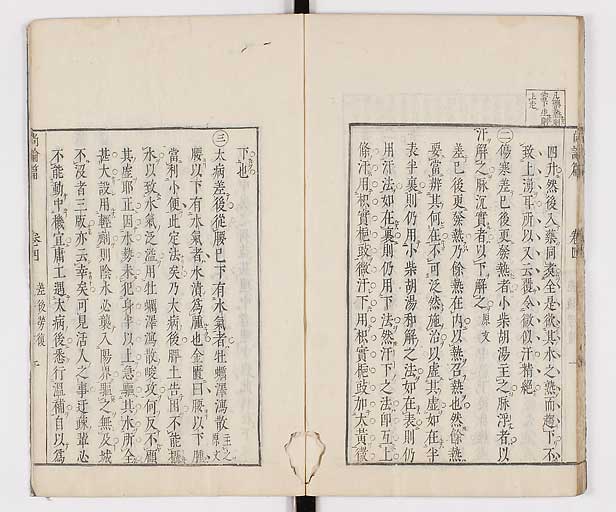 四升然後入藥同煮全是欲其水之熟而趨下不
致上湧耳所以又云覆令微似汗精絕
㊁傷寒差已後更發熱者小柴胡湯主之脉浮者以
汗解之脉沉實者以下解之原文
差已後更發熱乃餘熱在内以熱召熱也然餘熱
要當辨其何在不可泛然施治以虛其虛如在半
表半裏則仍用小柴胡湯和解之法如在表則仍
用汗法如在裏則仍用下法然汗下之法即互上
條汗用枳實梔豉微汗下用枳實梔豉加大黄微
下也
㊂大病差後從腰已下有水氣者牡蠣澤瀉散主之原文
腰以下有水氣者水漬為腫也金匱曰腰以下腫
當利小便此定法矣乃大病後脾土告困不能攝
水以致水氣泛溢用牡蠣澤瀉散峻攻何反不顧
其虛耶正因水勢未犯身半以上急驅其水所全
甚大設用輕劑則陰水必襲入陽界驅之無及城
不沒者三版亦云幸矣可見活人之事迂疎輩必
不能動中機宜庸工遇大病後悉行溫補自以為
尚論篇
卷四
差後勞復